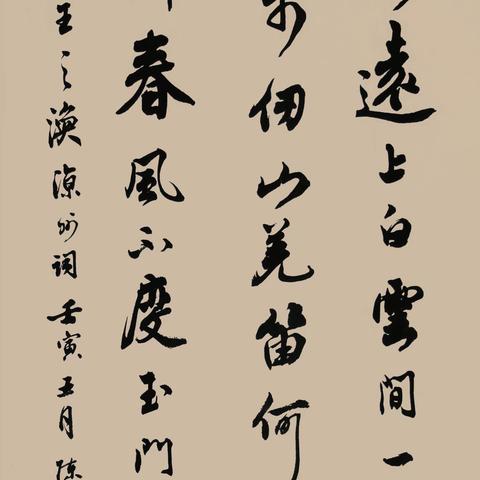 遠上白雲間一
万仞山羌笛何
春風不度玉門
王之渙涼州詞壬寅五月陳